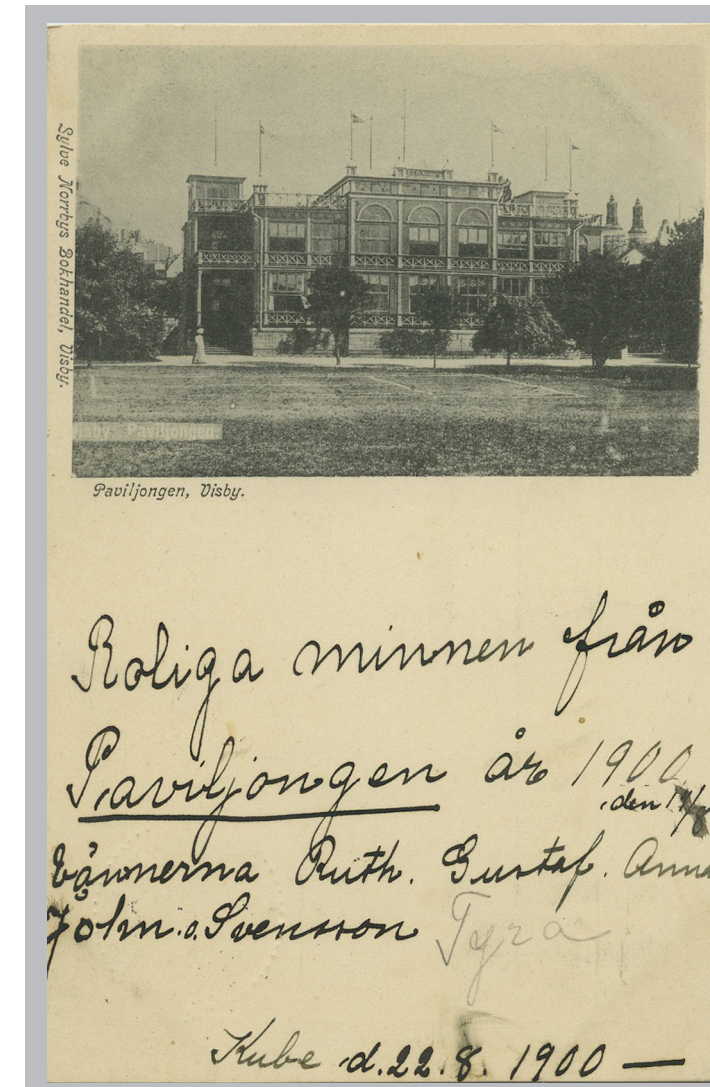 Sylve Norrbys Bokhandel, Visby.
Paviljongen
Paviljongen, Visby.
Roliga minnen från
Paviljongen år 1900
den
Vännerna Ruth. Gustaf. Anna
John. o. Svensson Tyra
Kube d. 22. 8. 1900 —